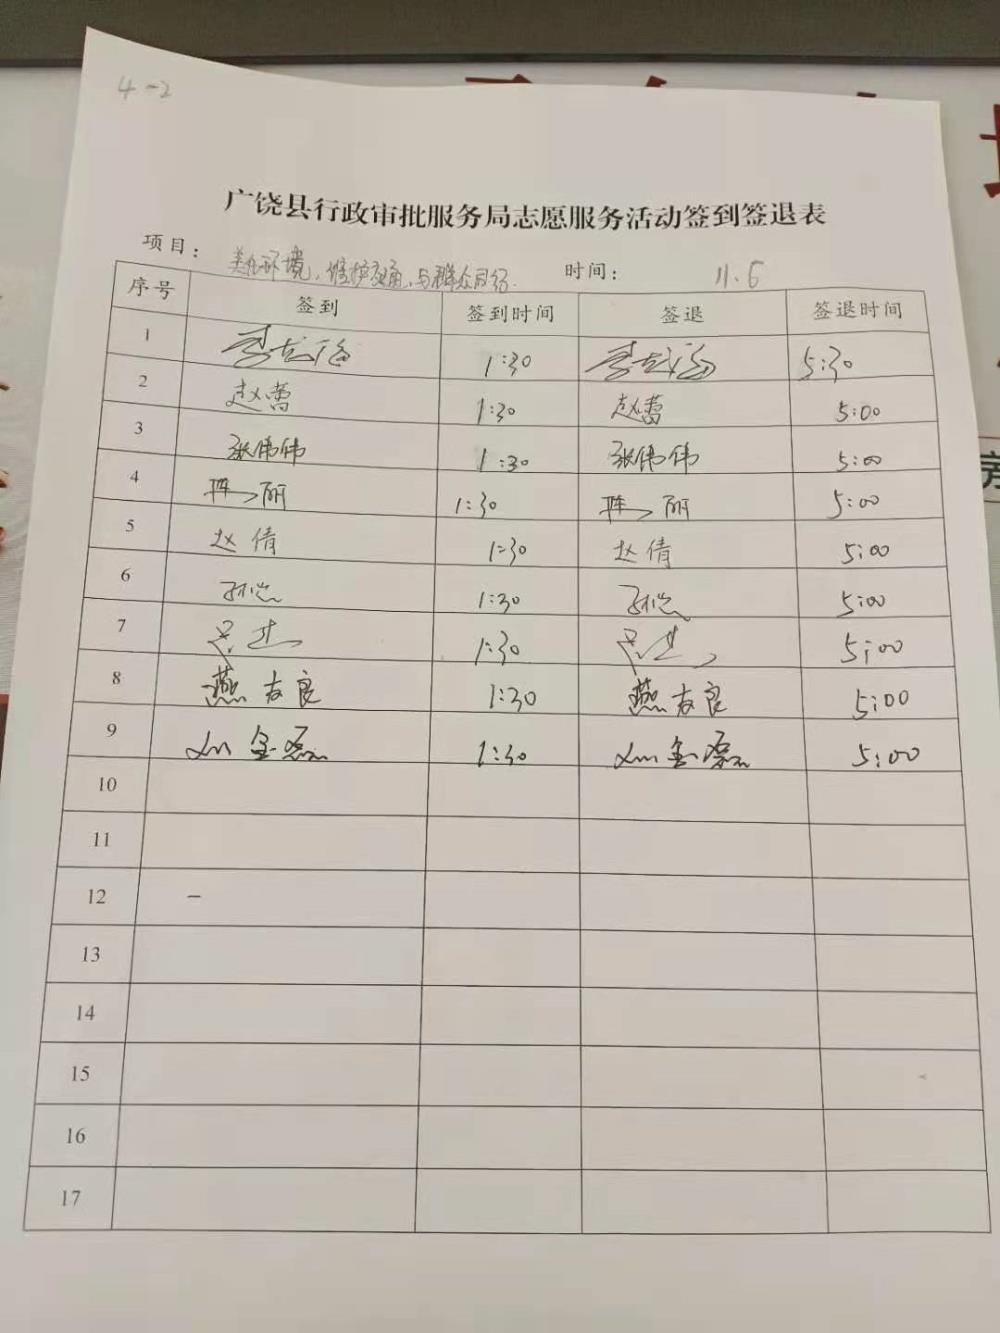 4-2
广饶县行政审批服务局志愿服务活动签到签退表
项目： 美化环境，维护交通，与群众同行. 时间： 11.6
序号 签到 签到时间 签退 签退时间
1 1:30 5:30
2 赵蕾 1:30 赵蕾 5:00
3 张伟伟 1:30 张伟伟 5:00
4 丽 1:30 丽 5:00
5 赵倩 1:30 赵倩 5:00
6 1:30 5:00
7 1:30 5:00
8 燕友良 1:30 燕友良 5:00
9 1:30 5:00
10
11
12 -
13
14
15
16
17